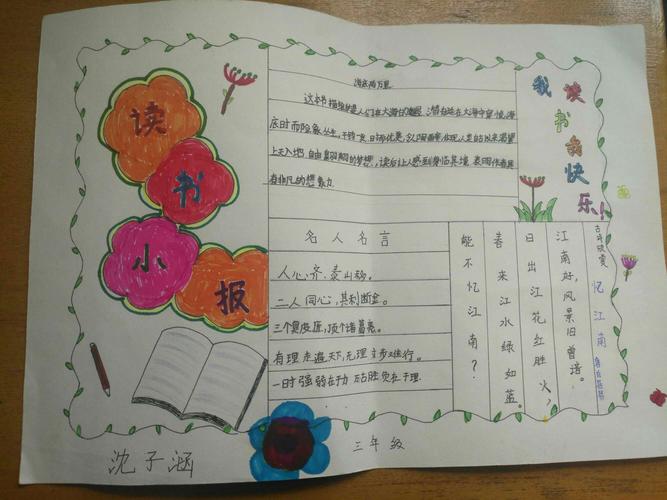 读
书
小
报
海底两万里
这本书描绘的是人们在大海
底时而险象丛生、千钧一发,时而优美
上天入地、自由翱翔的梦想,读后让人感到身临其境,表现作者具
有非凡的想象力
我读
书我
快
乐!
名人名言
人心齐,泰山移。
二人同心,其利断金。
三个臭皮匠,顶个诸葛亮。
有理走遍天下,无理寸步难行。
一时强弱在于力,千古胜负在于理
古诗欣赏 忆江南
江南好,风景旧曾谙。
日出江花红胜火,
春来江水绿如蓝。
能不忆江南?
沈子涵
三年级